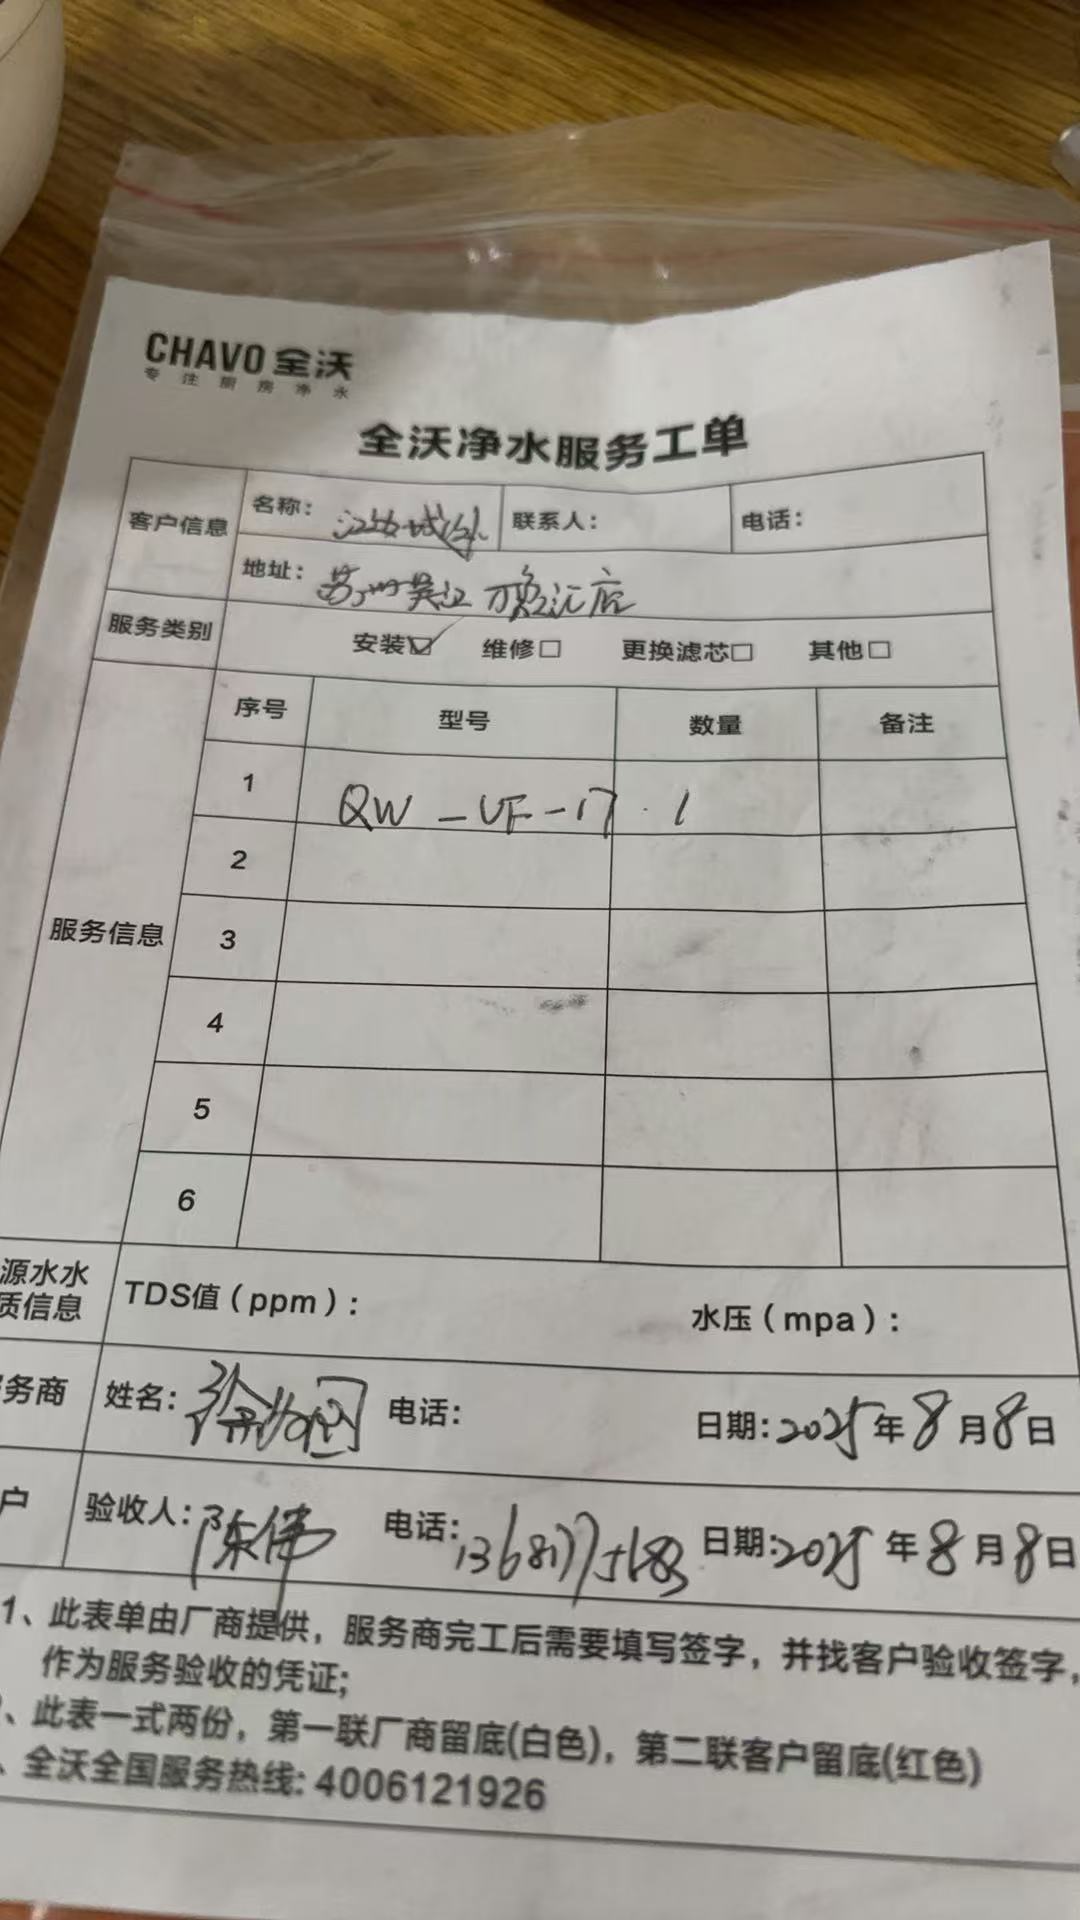 CHAVO 全沃
专注厨房净水
全沃净水服务工单
客户信息 名称： 江边城外 联系人： 电话：
地址： 苏州吴江万象汇店
服务类别 安装☑ 维修□ 更换滤芯□ 其他□
服务信息 序号 型号 数量 备注
1 QW-UF-17 1
2
3
4
5
6
源水水
质信息 TDS值（ppm）： 水压（mpa）：
务商 姓名： 电话： 日期：2025年8月8日
户 验收人：陈伟 电话： 日期：2025年8月8日
1、此表单由厂商提供，服务商完工后需要填写签字，并找客户验收签字，
作为服务验收的凭证；
、此表一式两份，第一联厂商留底(白色)，第二联客户留底(红色)
、全沃全国服务热线: 4006121926